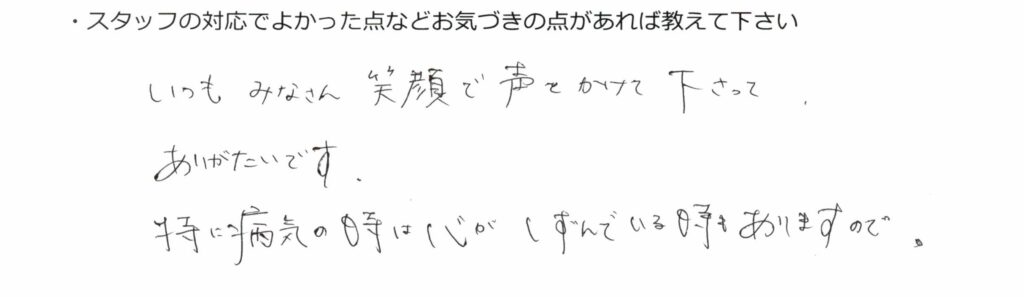 ・スタッフの対応でよかった点などお気づきの点があれば教えて下さい
いつも みなさん 笑顔で声をかけて 下さって、
ありがたいです。
特に病気の時は心が しずんでいる時もありますので。